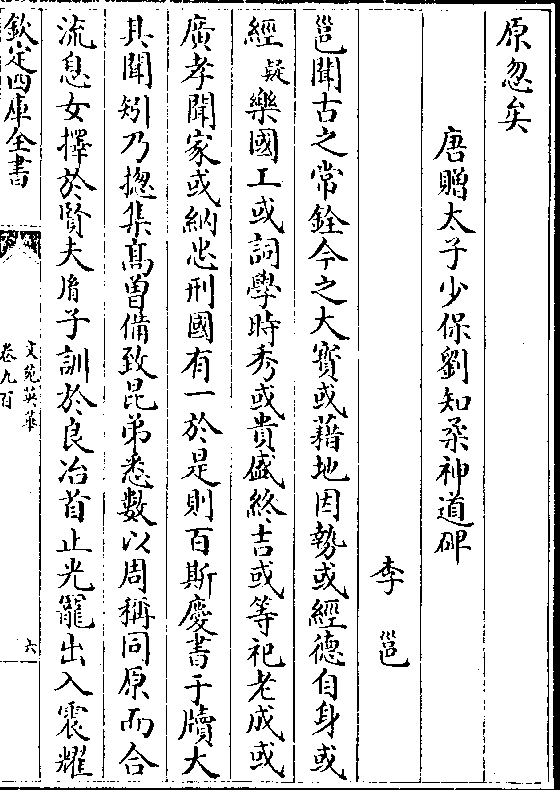 原忽矣
唐贈太子少保劉知柔神道碑
李邕
邕聞古之常銓今之大寳或藉地因勢或經德自身或
經疑樂國工或詞學時秀或貴盛終吉或等祀老成或
廣孝聞家或納忠刑國有一於是則百斯慶書于牘大
其聞矧乃揔集髙曽備致昆弟悉數以周稱同原而合
流息女擇於賢夫胤子訓於良冶首止光寵出入震耀
欽定四庫全書
文苑英華
卷九百
六